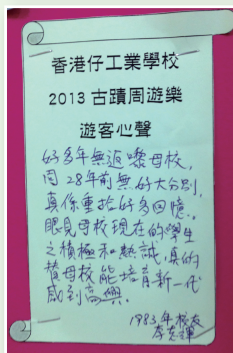 香港仔工業學校
2013 古蹟周遊樂
遊客心聲
好多年無返嚟母校,
同28年前無好大分別,
真係重拾好多回憶。
眼見母校現在的學生
之積極和熱誠,真的
替母校能培育新一代
感到高興。
1983年校友
李克輝